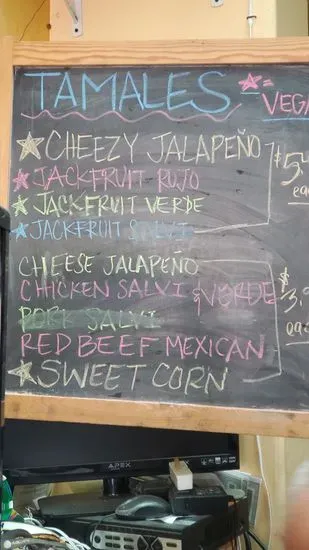 TAMALES ★=
VEGA
★ CHEEZY JALAPEÑO
★ JACKFRUIT ROJO
★ JACKFRUIT VERDE
★ JACKFRUIT SALVI
$5.
ea
CHEESE JALAPEÑO
CHICKEN SALVI & VERDE
PORK SALVI
RED BEEF MEXICAN
★ SWEET CORN
$3.
ea
APEX